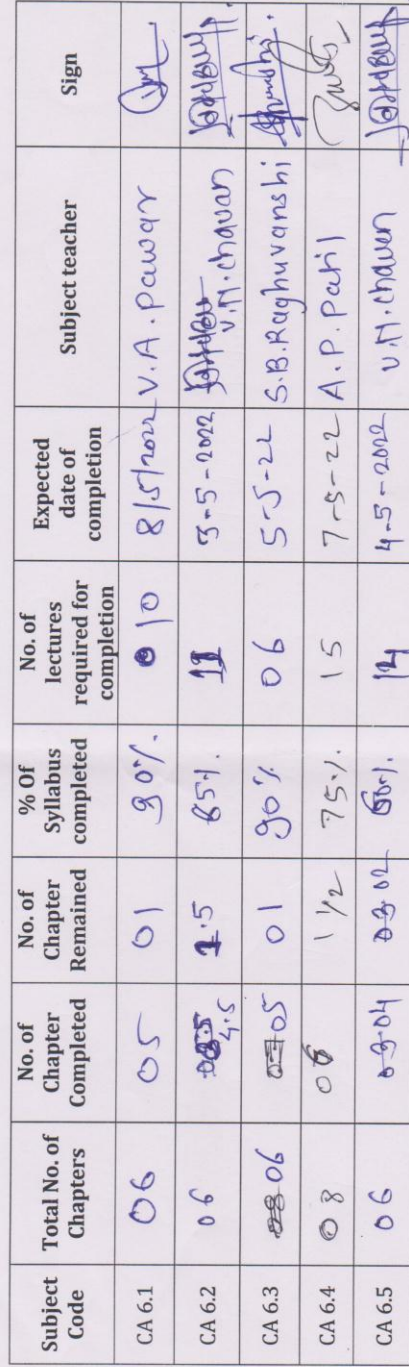 Subject Code | Total No. of Chapters | No. of Chapter Completed | No. of Chapter Remained | % Of Syllabus completed | No. of lectures required for completion | Expected date of completion | Subject teacher | Sign
CA 6.1 | 06 | 05 | 01 | 90%. | 10 | 8/5/2022 | V.A. Pawar
CA 6.2 | 06 | 4.5 | 1.5 | 65%. | 11 | 3-5-2022 | V.M. Chavan
CA 6.3 | 06 | 05 | 01 | 90% | 06 | 5-5-22 | S.B. Raghuvanshi
CA 6.4 | 08 | 06 | 1 1/2 | 75%. | 15 | 7-5-22 | A.P. Patil
CA 6.5 | 06 | 04 | 02 | 60%. | 12 | 4-5-2022 | V.M. Chavan